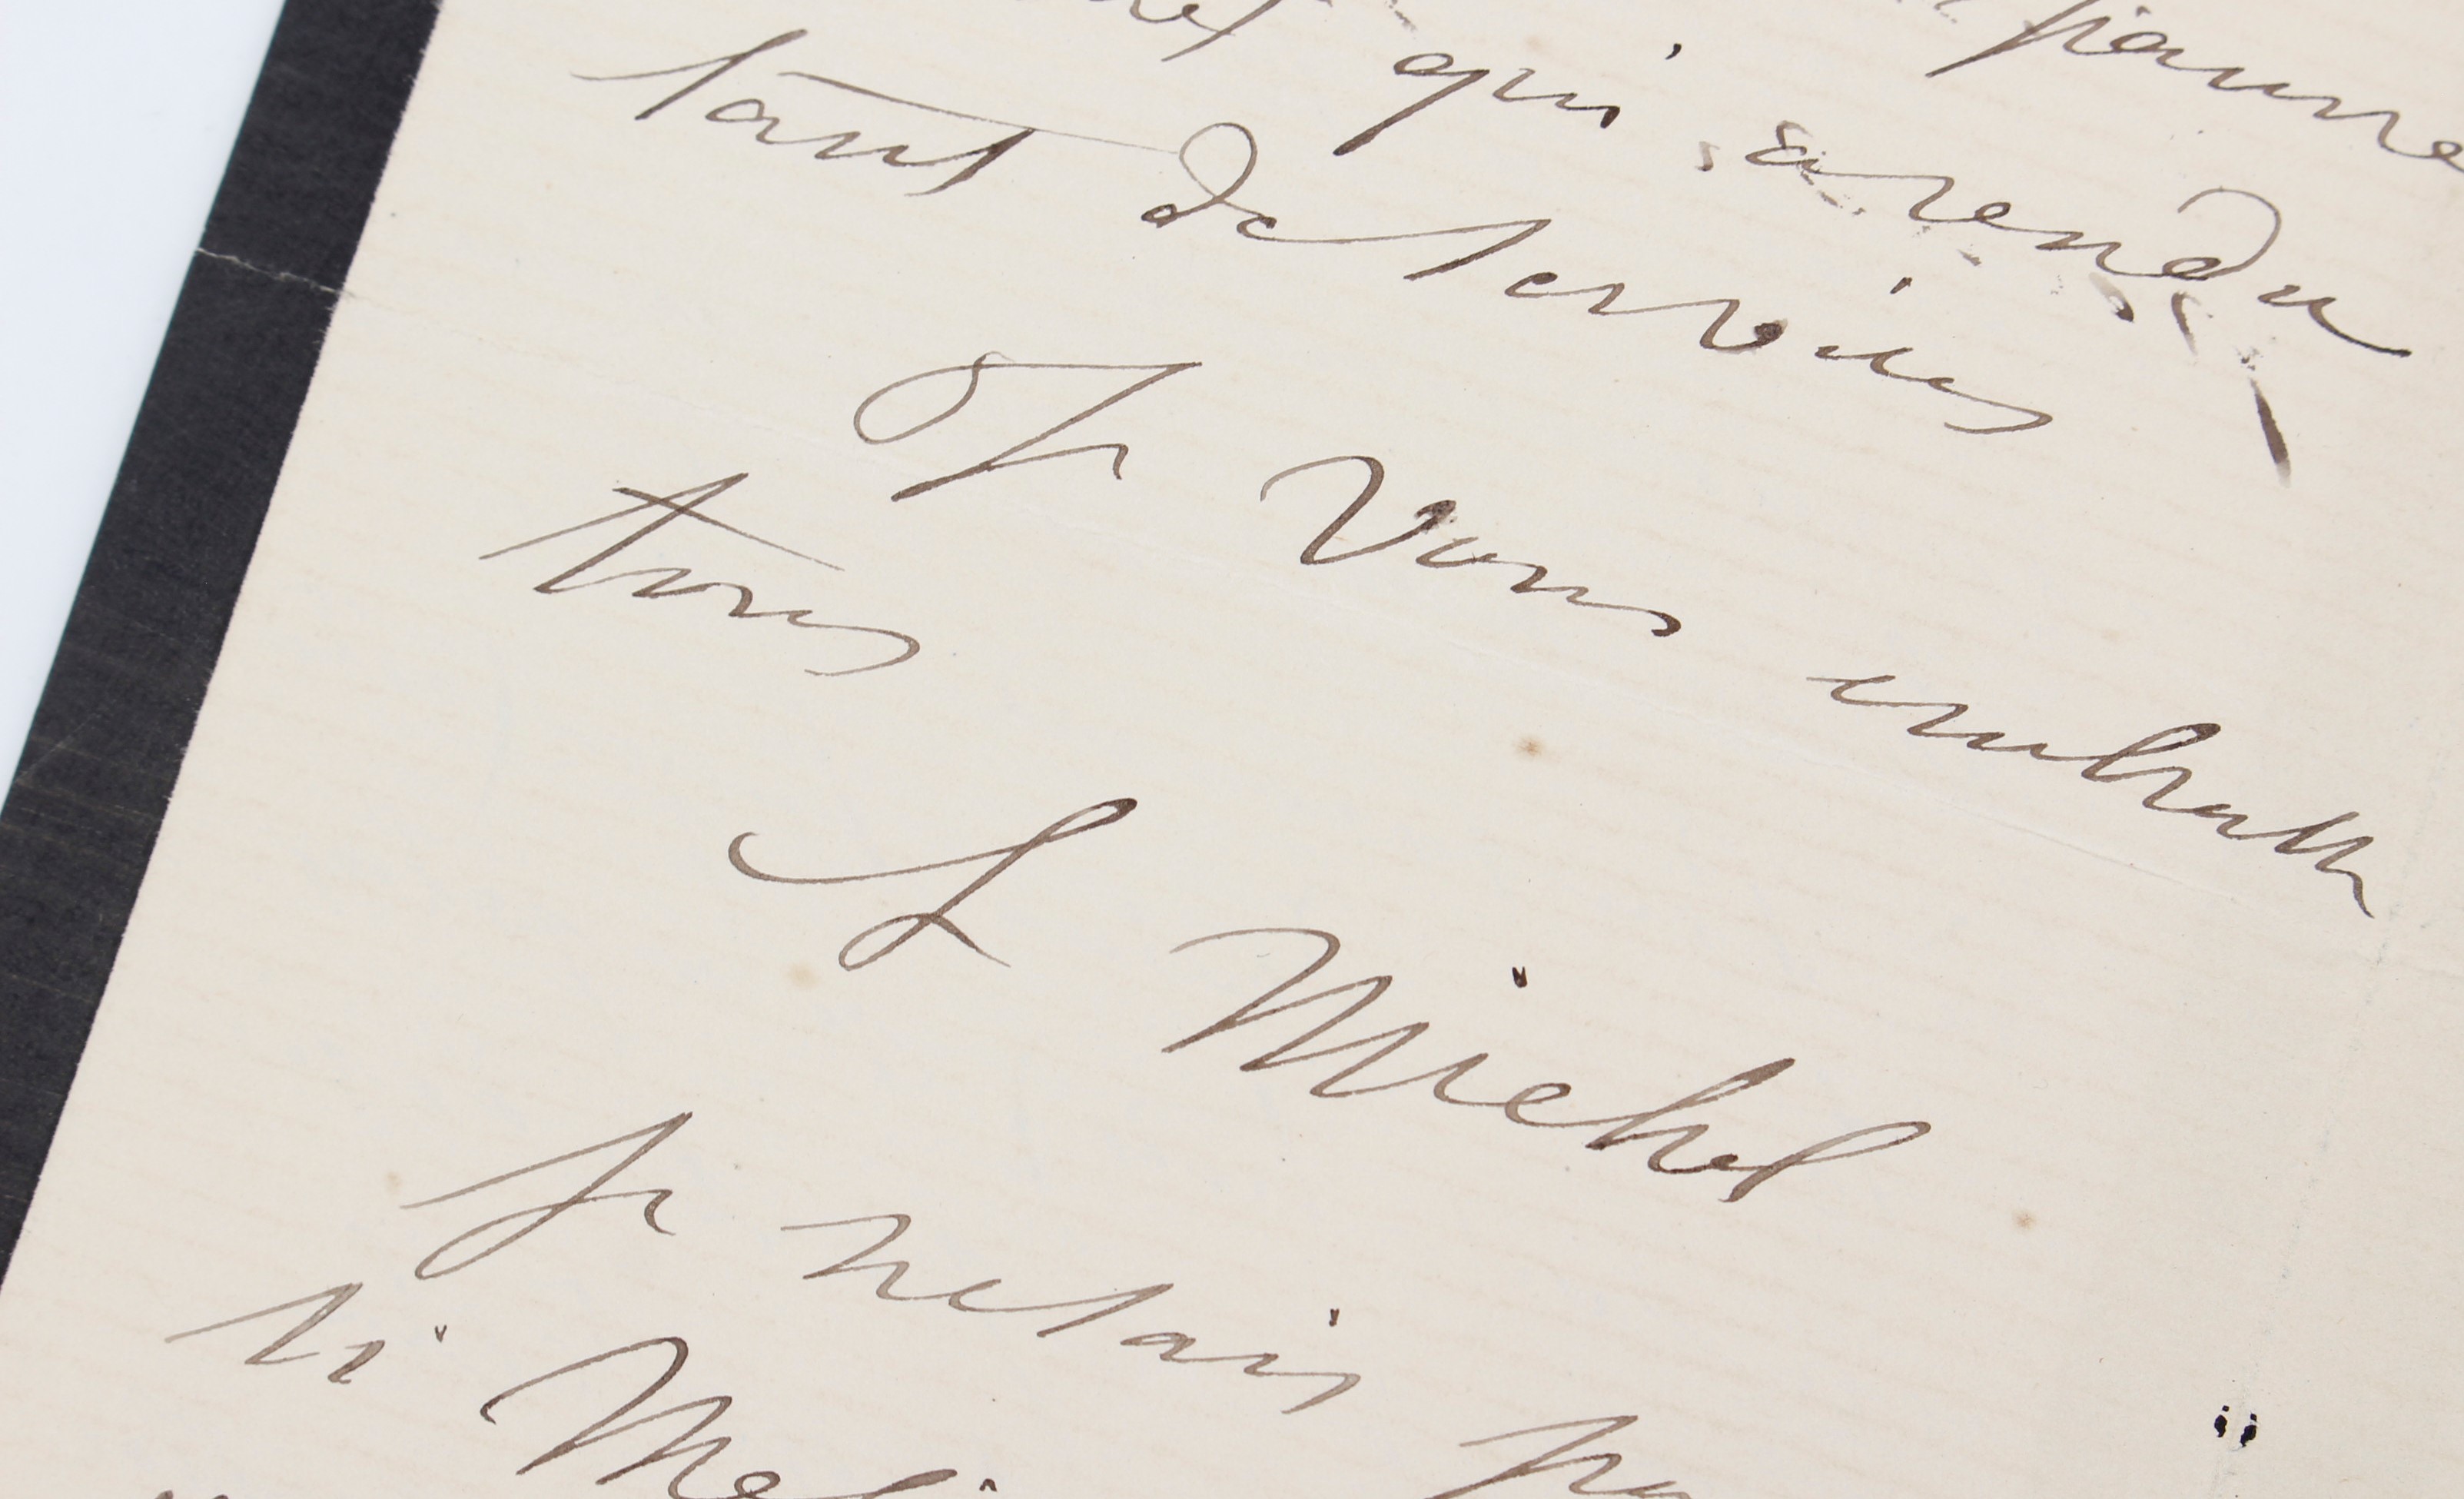 qui a rendu
tant de services
Je vous embrasse
tous
L Michel
Je ne sais pas
si